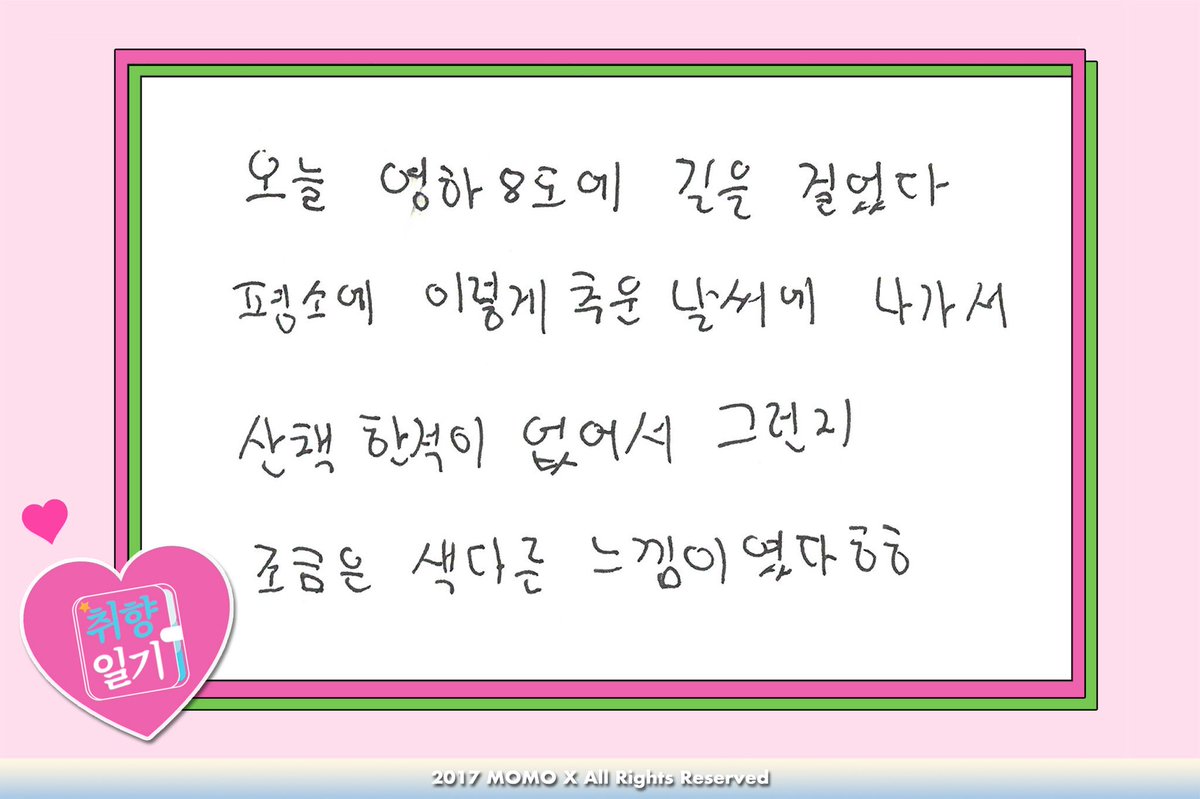 오늘 영하 8도에 길을 걸었다
평소에 이렇게 추운 날씨에 나가서
산책 한적이 없어서 그런지
조금은 색다른 느낌이였다ㅎㅎ
취향
일기
2017 MOMO X All Rights Reserved